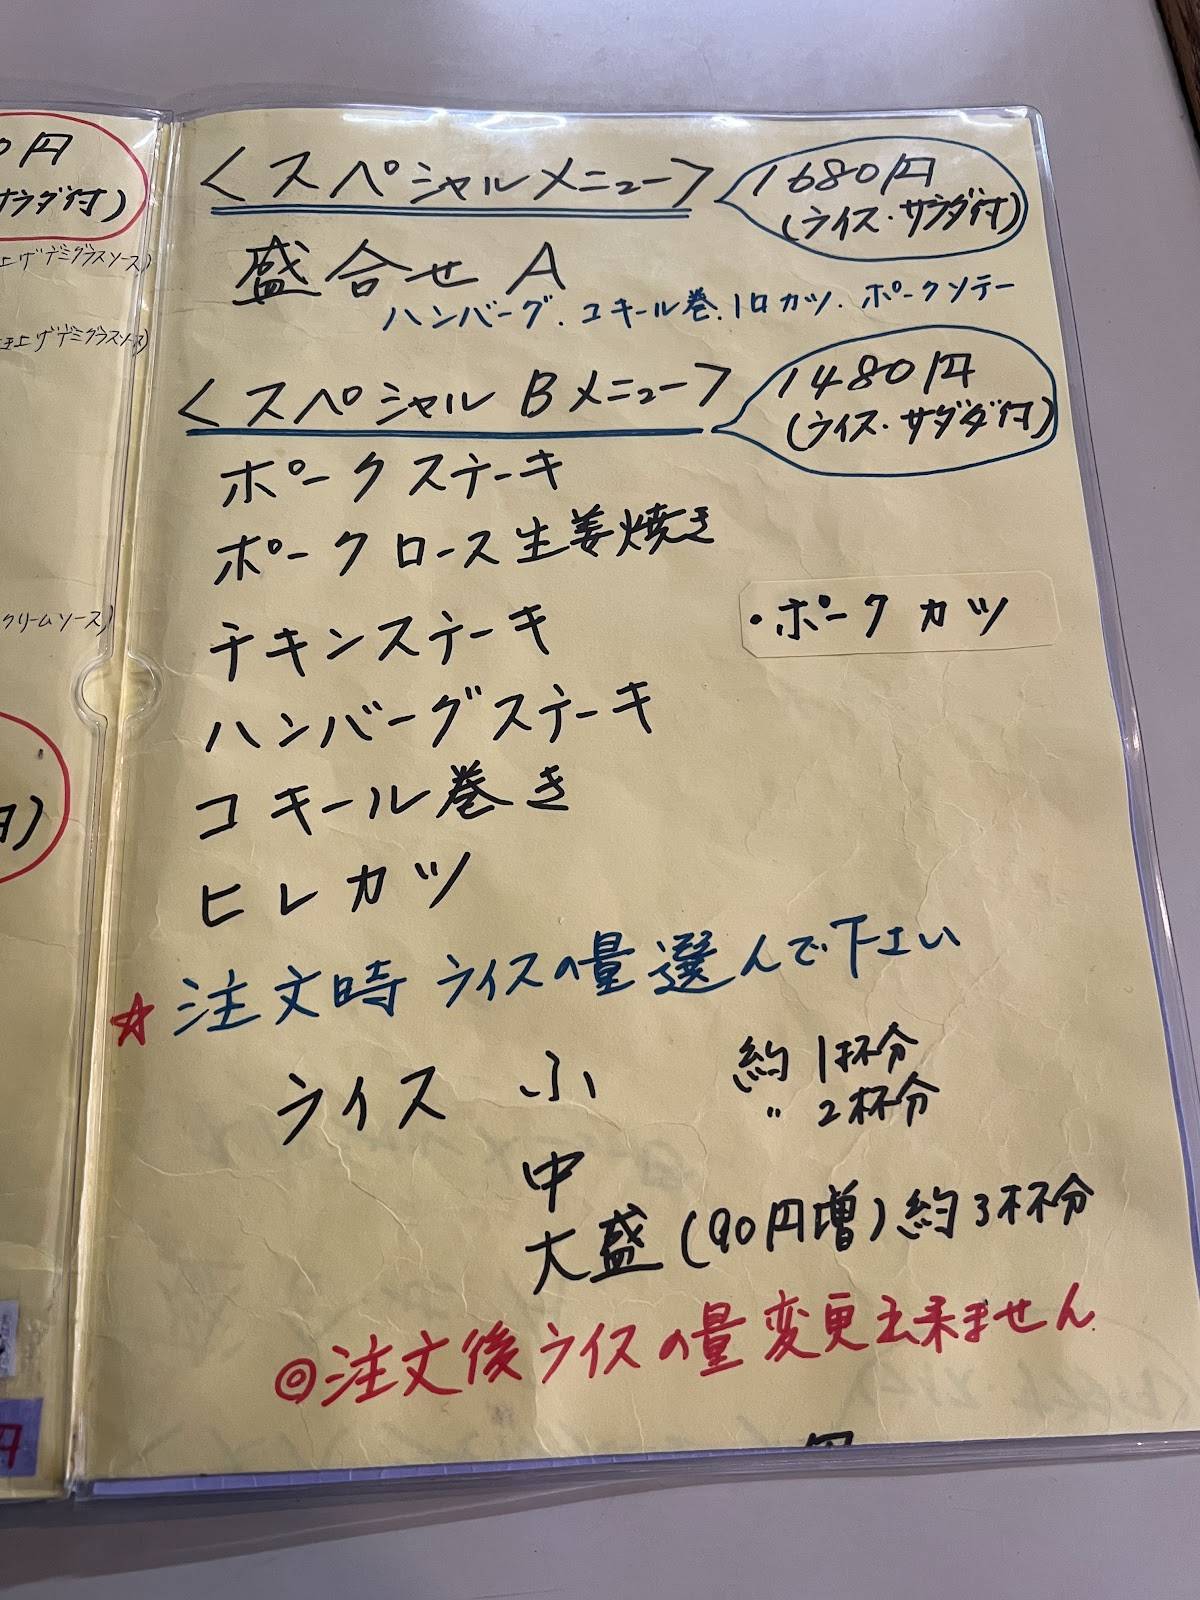 0円
サラダ付)
上げデミグラスソース)
き上げデミグラスソース)
クリームソース)
円
<スペシャルメニュー>
1680円
(ライス・サラダ付)
盛合せ A
ハンバーグ.コキール巻.1口カツ.ポークソテー
<スペシャル Bメニュー>
1480円
(ライス・サラダ付)
ポークステーキ
ポークロース生姜焼き
・ポークカツ
チキンステーキ
ハンバーグステーキ
コキール巻き
ヒレカツ
☆注文時 ライスの量選んで下さい
ライス 小 約 1杯分
中 〃 2杯分
大盛(90円増)約3杯分
◎注文後ライスの量変更出来ません